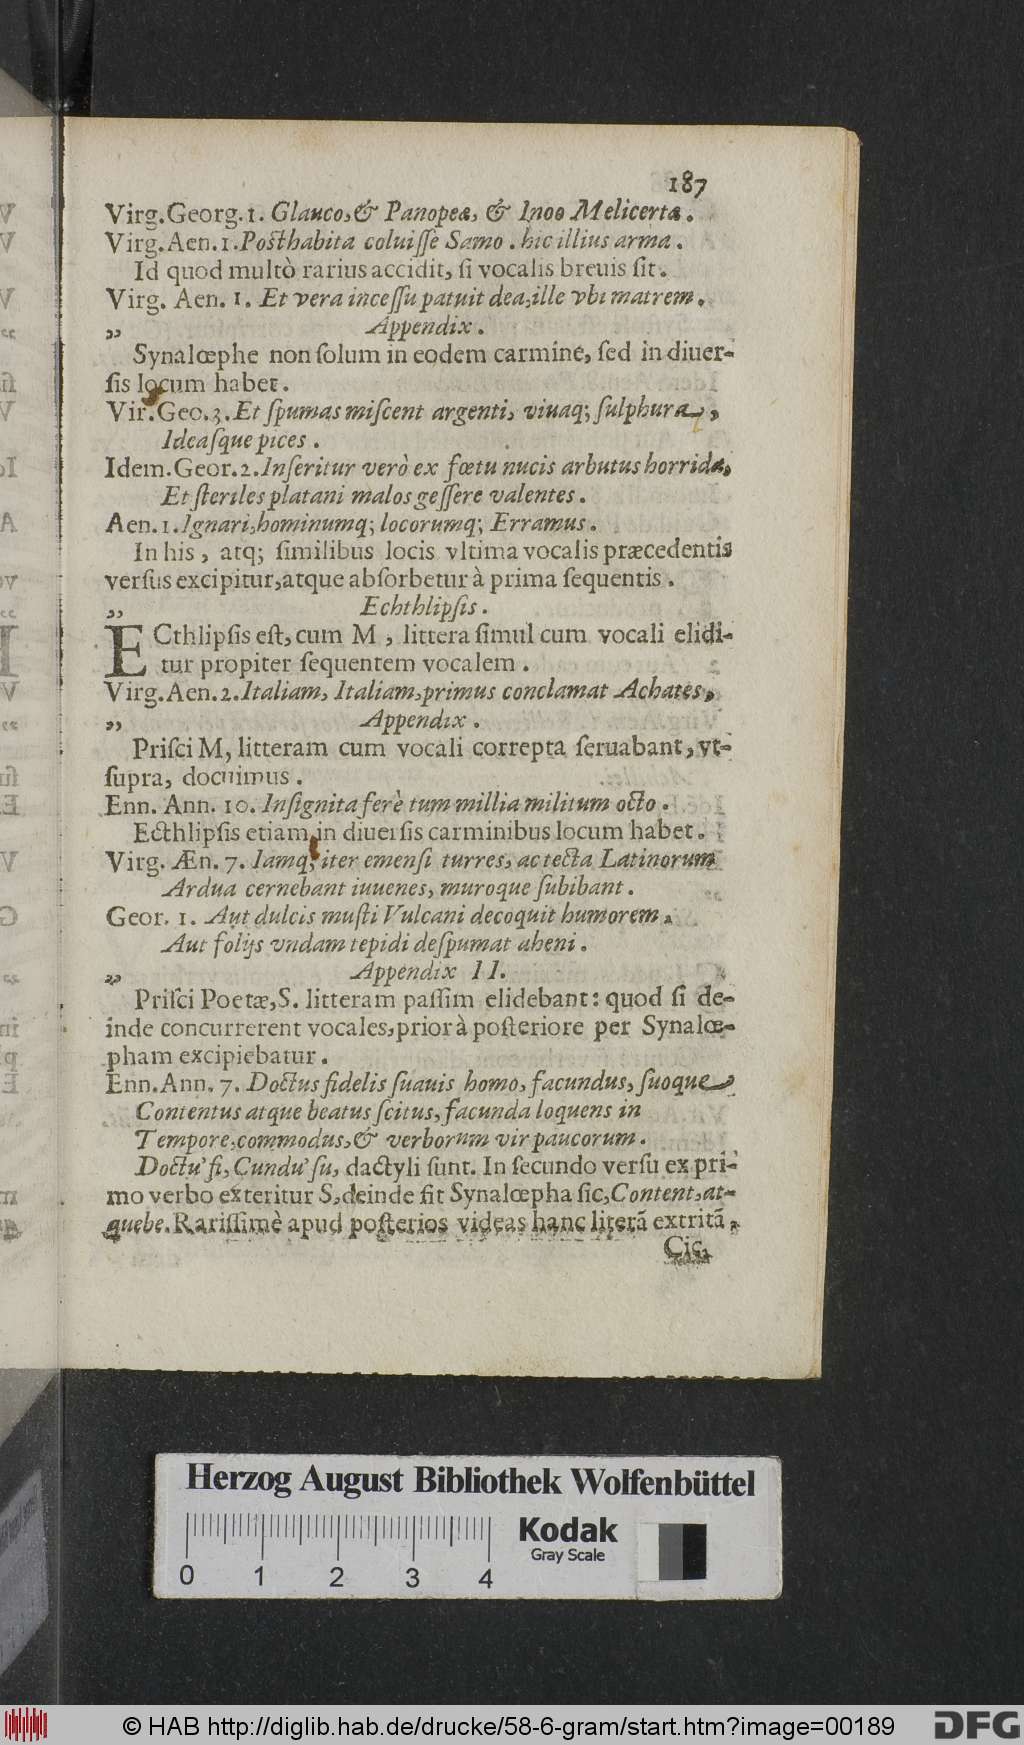 187
Virg. Georg. 1. Glauco, & Panopeæ, & Inoo Melicertæ.
Virg. Aen. 1. Posthabita coluisse Samo. hic illius arma.
Id quod multò rarius accidit, si vocalis breuis sit.
Virg. Aen. 1. Et vera incessu patuit dea, ille vbi matrem.
„ Appendix.
Synalœphe non solum in eodem carmine, sed in diuer-
sis locum habet.
Vir. Geo. 3. Et spumas miscent argenti, viuaq; sulphura,
Ideasque pices.
Idem. Geor. 2. Inseritur verò ex fœtu nucis arbutus horrida,
Et steriles platani malos gessere valentes.
Aen. 1. Ignari, hominumq; locorumq; Erramus.
In his, atq; similibus locis vltima vocalis præcedentis
versus excipitur, atque absorbetur à prima sequentis.
„ Echthlipsis.
ECthlipsis est, cum M, littera simul cum vocali elidi-
tur propiter sequentem vocalem.
Virg. Aen. 2. Italiam, Italiam, primus conclamat Achates,
„ Appendix.
Prisci M, litteram cum vocali correpta seruabant, vt-
supra, docuimus.
Enn. Ann. 10. Insignita ferè tum millia militum octo.
Ecthlipsis etiam in diuersis carminibus locum habet.
Virg. Æn. 7. Iamq; iter emensi turres, ac tecta Latinorum
Ardua cernebant iuuenes, muroque subibant.
Geor. 1. Aut dulcis musti Vulcani decoquit humorem,
Aut folijs vndam tepidi despumat aheni.
„ Appendix II.
Prisci Poetæ, S. litteram passim elidebant: quod si de-
inde concurrerent vocales, prior à posteriore per Synalœ-
pham excipiebatur.
Enn. Ann. 7. Doctus fidelis suauis homo, facundus, suoque
Contentus atque beatus scitus, facunda loquens in
Tempore, commodus, & verborum vir paucorum.
Doctu' fi, Cundu' su, dactyli sunt. In secundo versu ex pri-
mo verbo exteritur S, deinde fit Synalœpha sic, Content, at-
quebe. Rarissimè apud posterios videas hanc literã extritã,
Cic.
Herzog August Bibliothek Wolfenbüttel
Kodak
Gray Scale
0 1 2 3 4
© HAB http://diglib.hab.de/drucke/58-6-gram/start.htm?image=00189
DFG